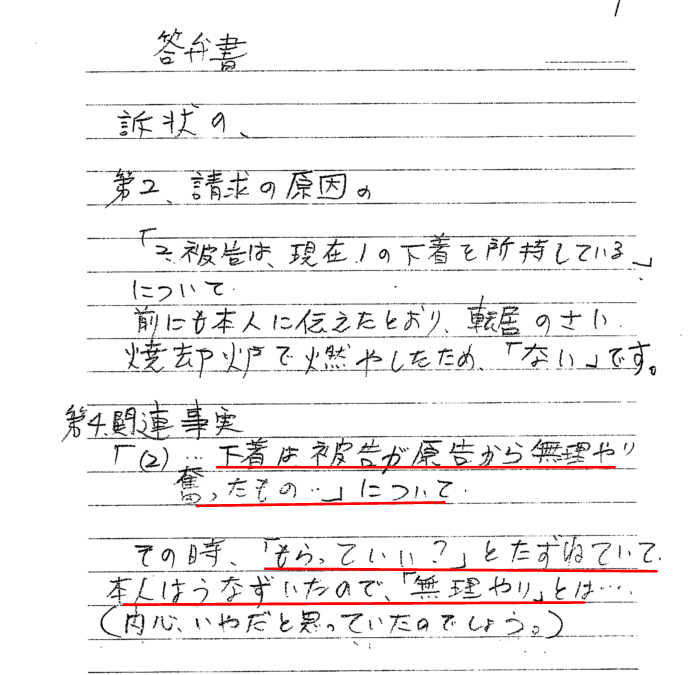 1
答弁書
訴状の、
第2、請求の原因の
「2、被告は、現在、1の下着を所持している」
について.
前にも本人に伝えたとおり、転居のさい
焼却炉で燃やしたため、「ない」です。
第4.関連事実
「(2)…下着は被告が原告から無理やり
奮ったもの…」について.
その時、「もらっていい?」とたずねていて
本人はうなずいたので、「無理やり」とは….
(内心、いやだと思っていたのでしょう。)